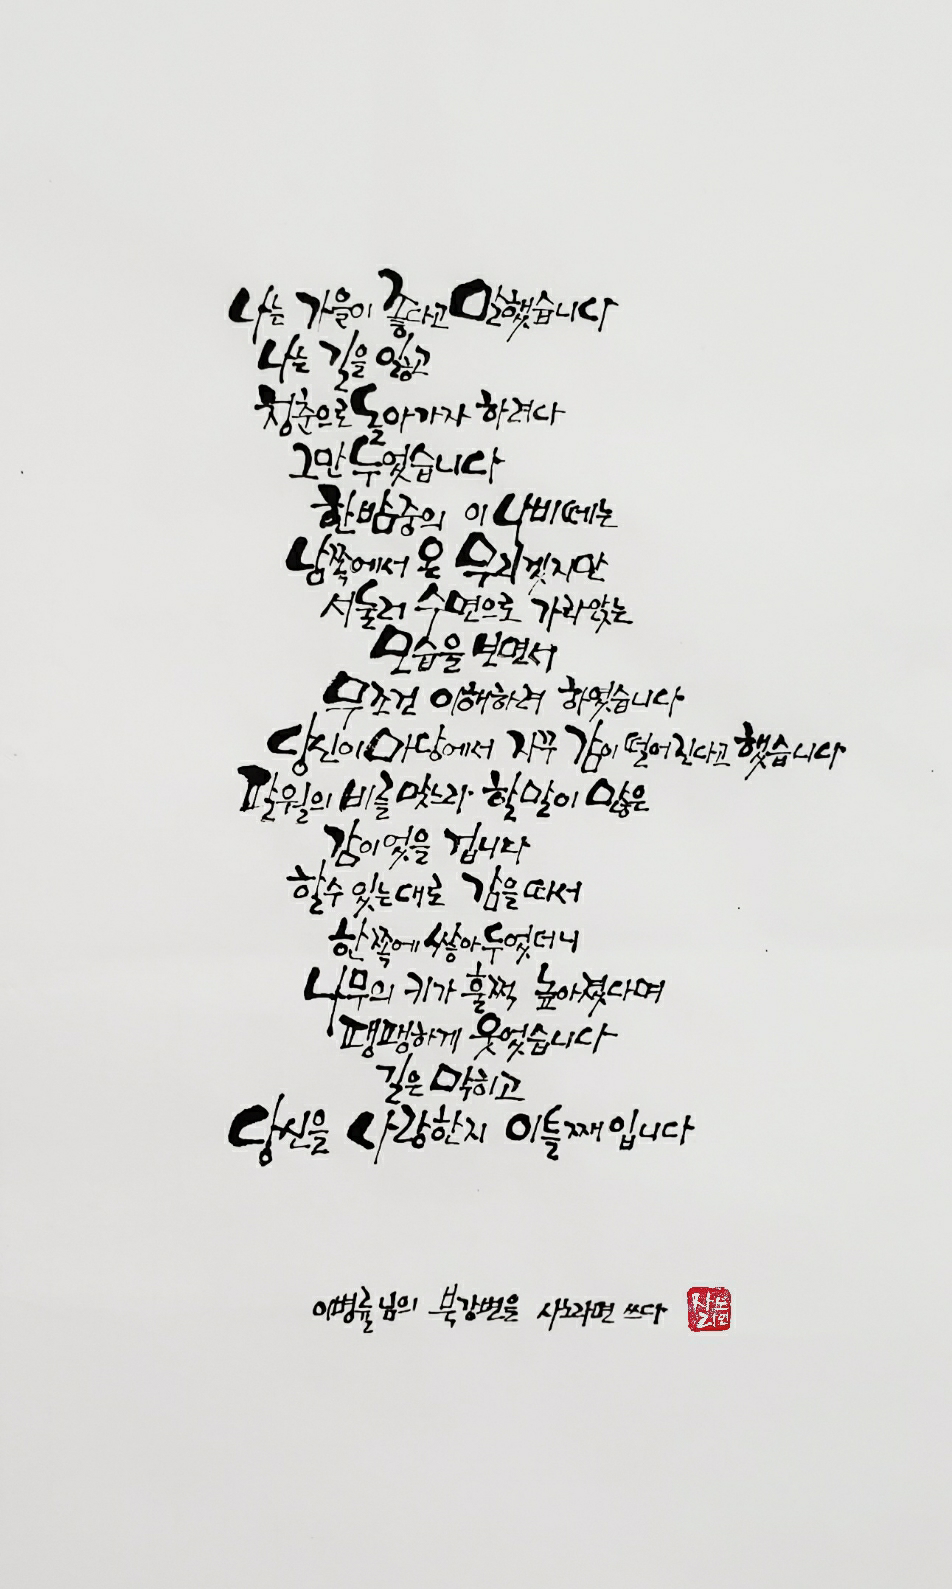 나는 가을이 좋다고 말했습니다
나는 길을 잃고
청춘으로 돌아가자 하려다
그만두었습니다
한밤중의 이 나비떼는
남쪽에서 온 무리겠지만
서둘러 수면으로 가라앉는
모습을 보면서
무조건 이해하려 하였습니다
당신이 마당에서 자꾸 감이 떨어진다고 했습니다
팔월의 비를 맞느라 할말이 많은
감이었을 겁니다
할수 있는대로 감을 따서
한쪽에 쌓아두었더니
나무의 키가 훌쩍 높아졌다며
팽팽하게 웃었습니다
길은 막히고
당신을 사랑한지 이틀째입니다
이병률님의 북강변을 사노라면 쓰다
사노라면